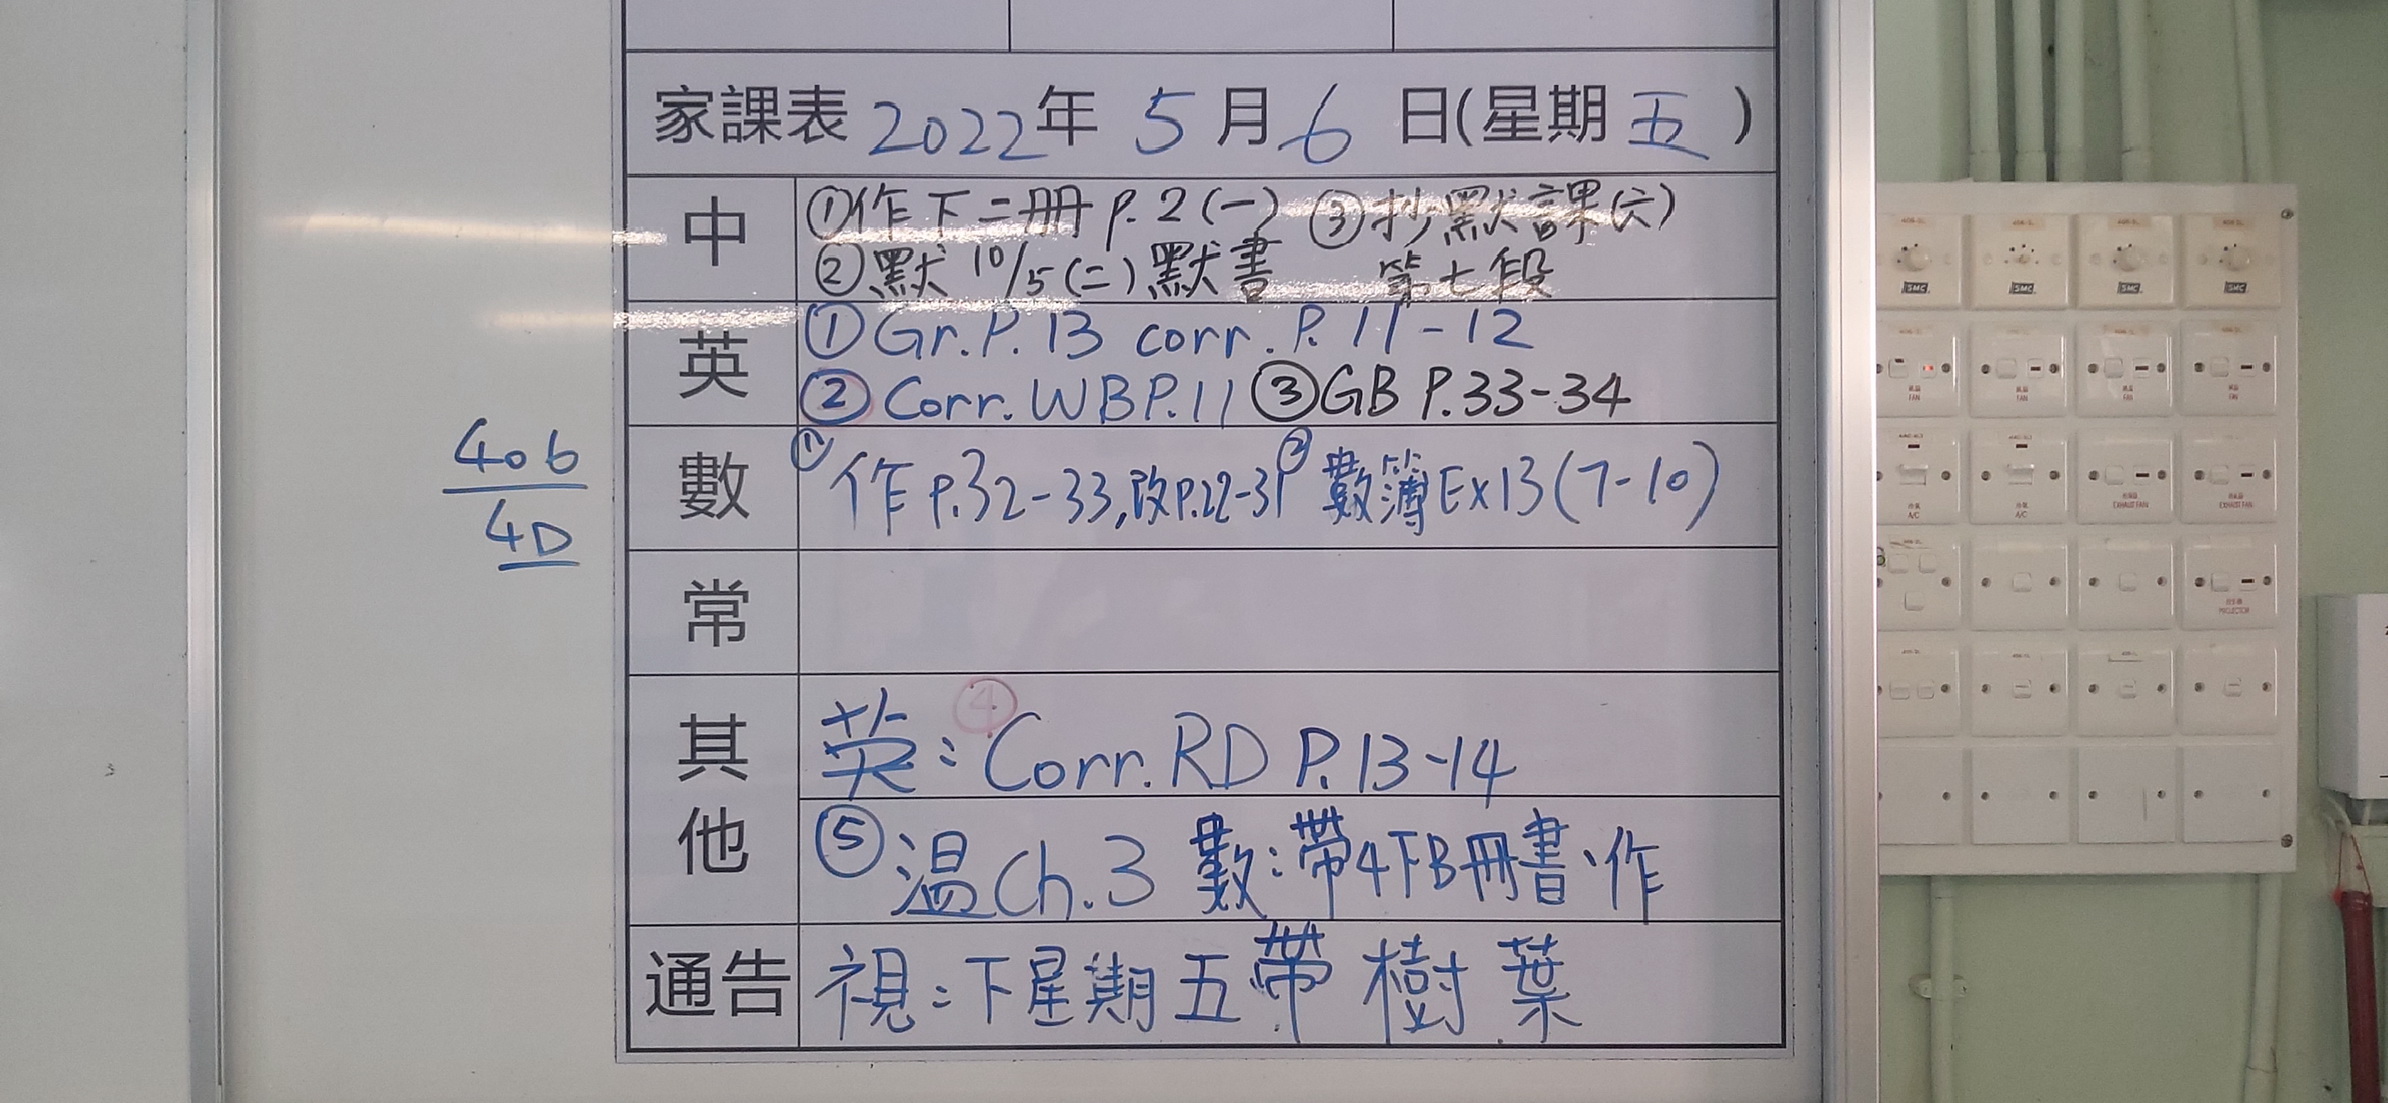 家課表 2022年 5月 6日(星期五)
中 ①作下二冊 P.2(一) ③抄默課(六)
②默 10/5(二)默書 第七段
英 ①Gr.P.13 corr. P.11-12
②Corr. WB P.11 ③GB P.33-34
數 ①作P.32-33,改P.22-31 ②數簿Ex13(7-10)
406
4D
常
其他
英: ④Corr. RD P.13-14
⑤温Ch.3 數:帶4下B冊書、作
通告 視:下星期五帶樹葉
SMC SMC SMC SMC
FAN FAN FAN FAN
A/C A/C EXHAUST FAN EXHAUST FAN
PROJECTOR